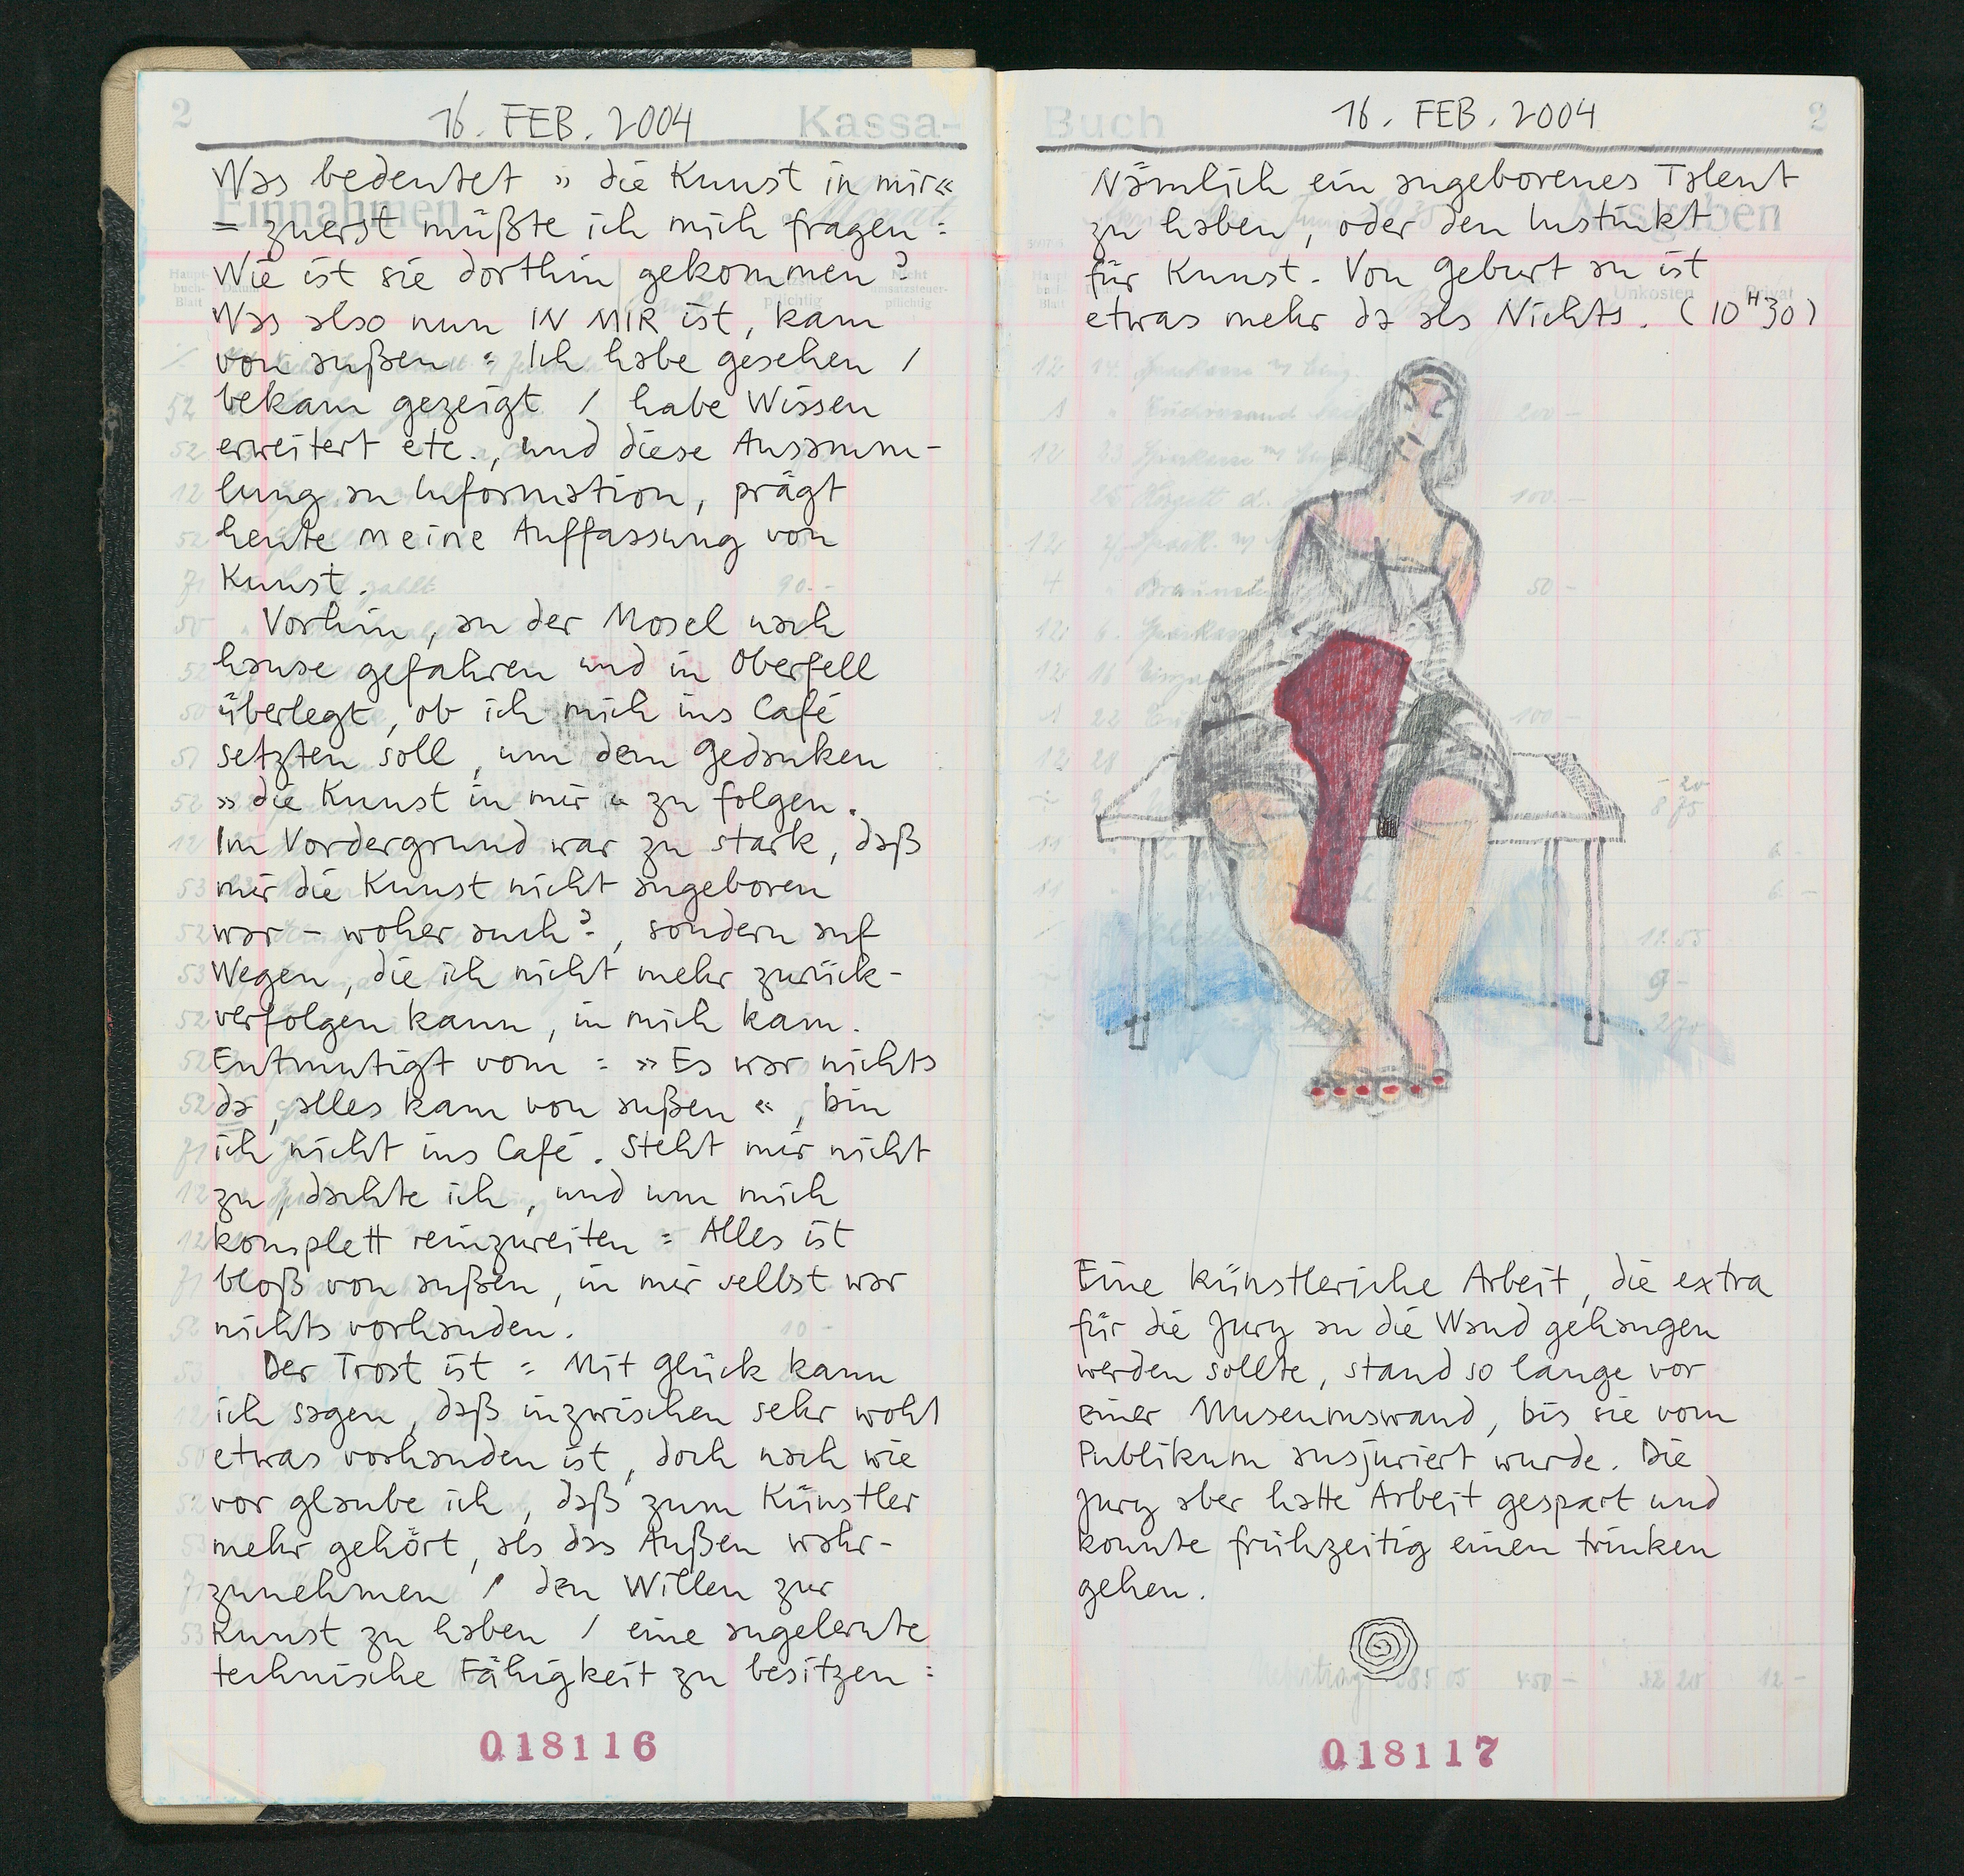 2
16. FEB. 2004
Kassa-
Einnahmen
Was bedeutet »die Kunst in mir«
= zuerst müßte ich mich fragen:
Wie ist sie dorthin gekommen?
Was also nun IN MIR ist, kam
von außen: Ich habe gesehen /
bekam gezeigt / habe Wissen
erweitert etc., und diese Ansamm-
lung an Information, prägt
heute meine Auffassung von
Kunst.
Vorhin, an der Mosel nach
hause gefahren und in Oberfell
überlegt, ob ich mich ins Café
setzten soll, um dem Gedanken
»die Kunst in mir« zu folgen.
Im Vordergrund war zu stark, daß
mir die Kunst nicht angeboren
war – woher auch?, sondern auf
Wegen, die ich nicht mehr zurück-
verfolgen kann, in mich kam.
Entmutigt vom: »Es war nichts
da, alles kam von außen«, bin
ich nicht ins Café. Steht mir nicht
zu, dachte ich, und um mich
komplett reinzureiten: Alles ist
bloß von außen, in mir selbst war
nichts vorhanden.
Der Trost ist: Mit Glück kann
ich sagen, daß inzwischen sehr wohl
etwas vorhanden ist, doch nach wie
vor glaube ich, daß zum Künstler
mehr gehört, als das Außen wahr-
zunehmen / den Willen zur
Kunst zu haben / eine angelernte
technische Fähigkeit zu besitzen:
018116
Buch
16. FEB. 2004
2
Ausgaben
Nämlich ein angeborenes Talent
zu haben, oder den Instinkt
für Kunst. Von Geburt an ist
etwas mehr da als Nichts. (10H30)
Eine künstlerische Arbeit, die extra
für die Jury an die Wand gehangen
werden sollte, stand so lange vor
einer Museumswand, bis sie vom
Publikum ausjuriert wurde. Die
Jury aber hatte Arbeit gespart und
konnte frühzeitig einen trinken
gehen.
018117